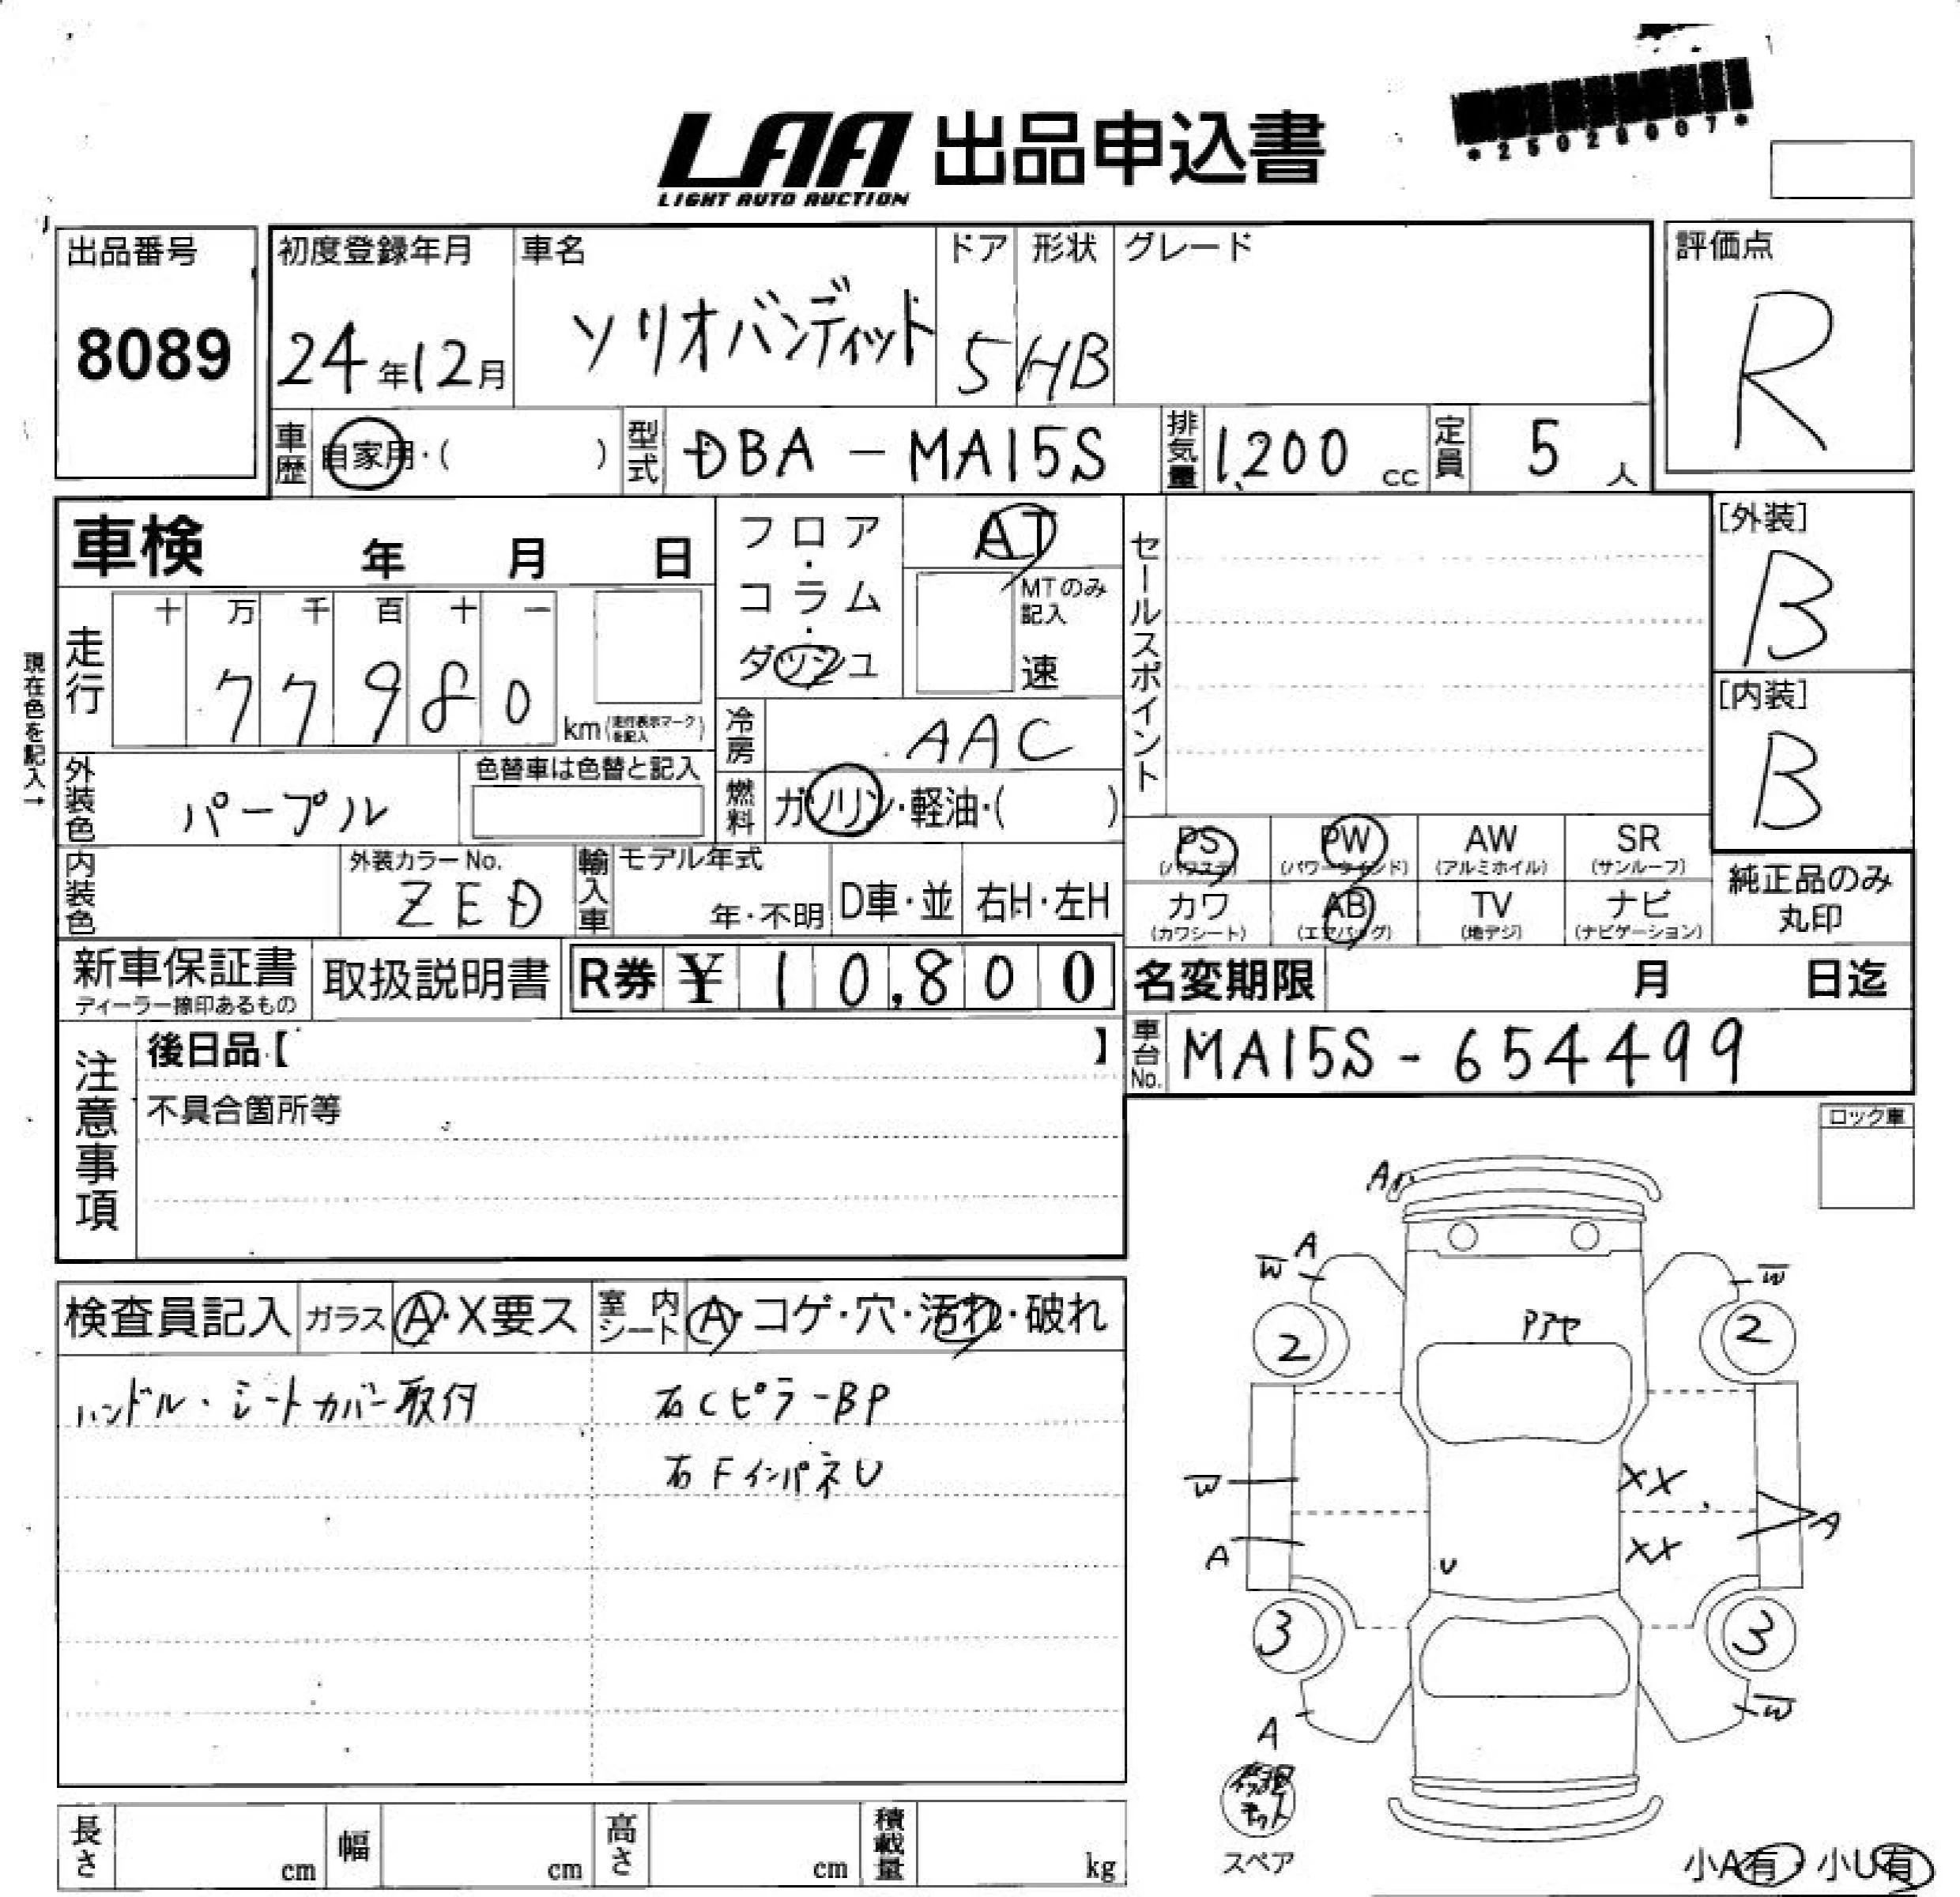 LAA 出品申込書
LIGHT AUTO AUCTION
*25028007*
出品番号
8089
初度登録年月
24年12月
車名
ソリオバンディット
ドア
5
形状
HB
グレード
評価点
R
車歴
自家用・( )
型式
DBA-MA15S
排気量
1,200 cc
定員
5 人
車検 年 月 日
フロア・コラム・ダッシュ
AT
MTのみ記入
速
セールスポイント
[外装]
B
[内装]
B
現在色を記入→
走行
十 万 千 百 十 一
7 7 9 8 0
km (走行表示マークを記入)
冷房
AAC
外装色
パープル
色替車は色替と記入
燃料
ガソリン・軽油・( )
PS (パワステ)
PW (パワーウインド)
AW (アルミホイル)
SR (サンルーフ)
カワ (カワシート)
AB (エアバッグ)
TV (地デジ)
ナビ (ナビゲーション)
純正品のみ丸印
内装色
外装カラーNo.
ZED
輸入車
モデル年式
年・不明
D車・並
右H・左H
新車保証書
ディーラー捺印あるもの
取扱説明書
R券 ¥ 10,800
名変期限 月 日迄
注意事項
後日品【 】
不具合箇所等
車台No.
MA15S-654499
ロック車
検査員記入
ガラス
A・X要ス
室内シート
A・コゲ・穴・汚れ・破れ
ハンドル・シートカバー取付
右CピラーBP
右FインパネU
A
A
W
W
2
2
アアセ
W
XX
A
A
XX
U
3
3
A
W
修理キット
スペア
小A有・小U有
長さ cm
幅 cm
高さ cm
積載量 kg